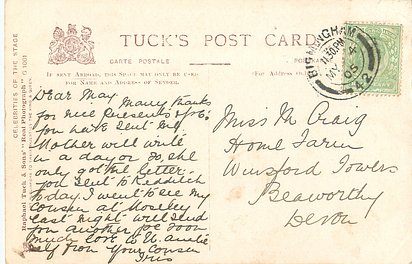 TUCK'S POST CARD
CARTE POSTALE
POSTKARTE
IF SENT ABROAD, THIS SPACE MAY ONLY BE USED
FOR NAME AND ADDRESS OF SENDER.
CELEBRITIES OF THE STAGE
Raphael Tuck & Sons' "Real Photograph"
BIRMINGHAM
MY 4
05
42
Dear May. Many thanks
for nice presents &c.
you have sent me
Mother will write
in a day or so, she
only got the letter
you sent to Redditch
today. I went to see my
cousin at Moseley
last night will send
you another pc soon
much love to
self from your cousin
Iris
Miss M Craig
Home Farm
Winsford Towers
Beaworthy
Devon